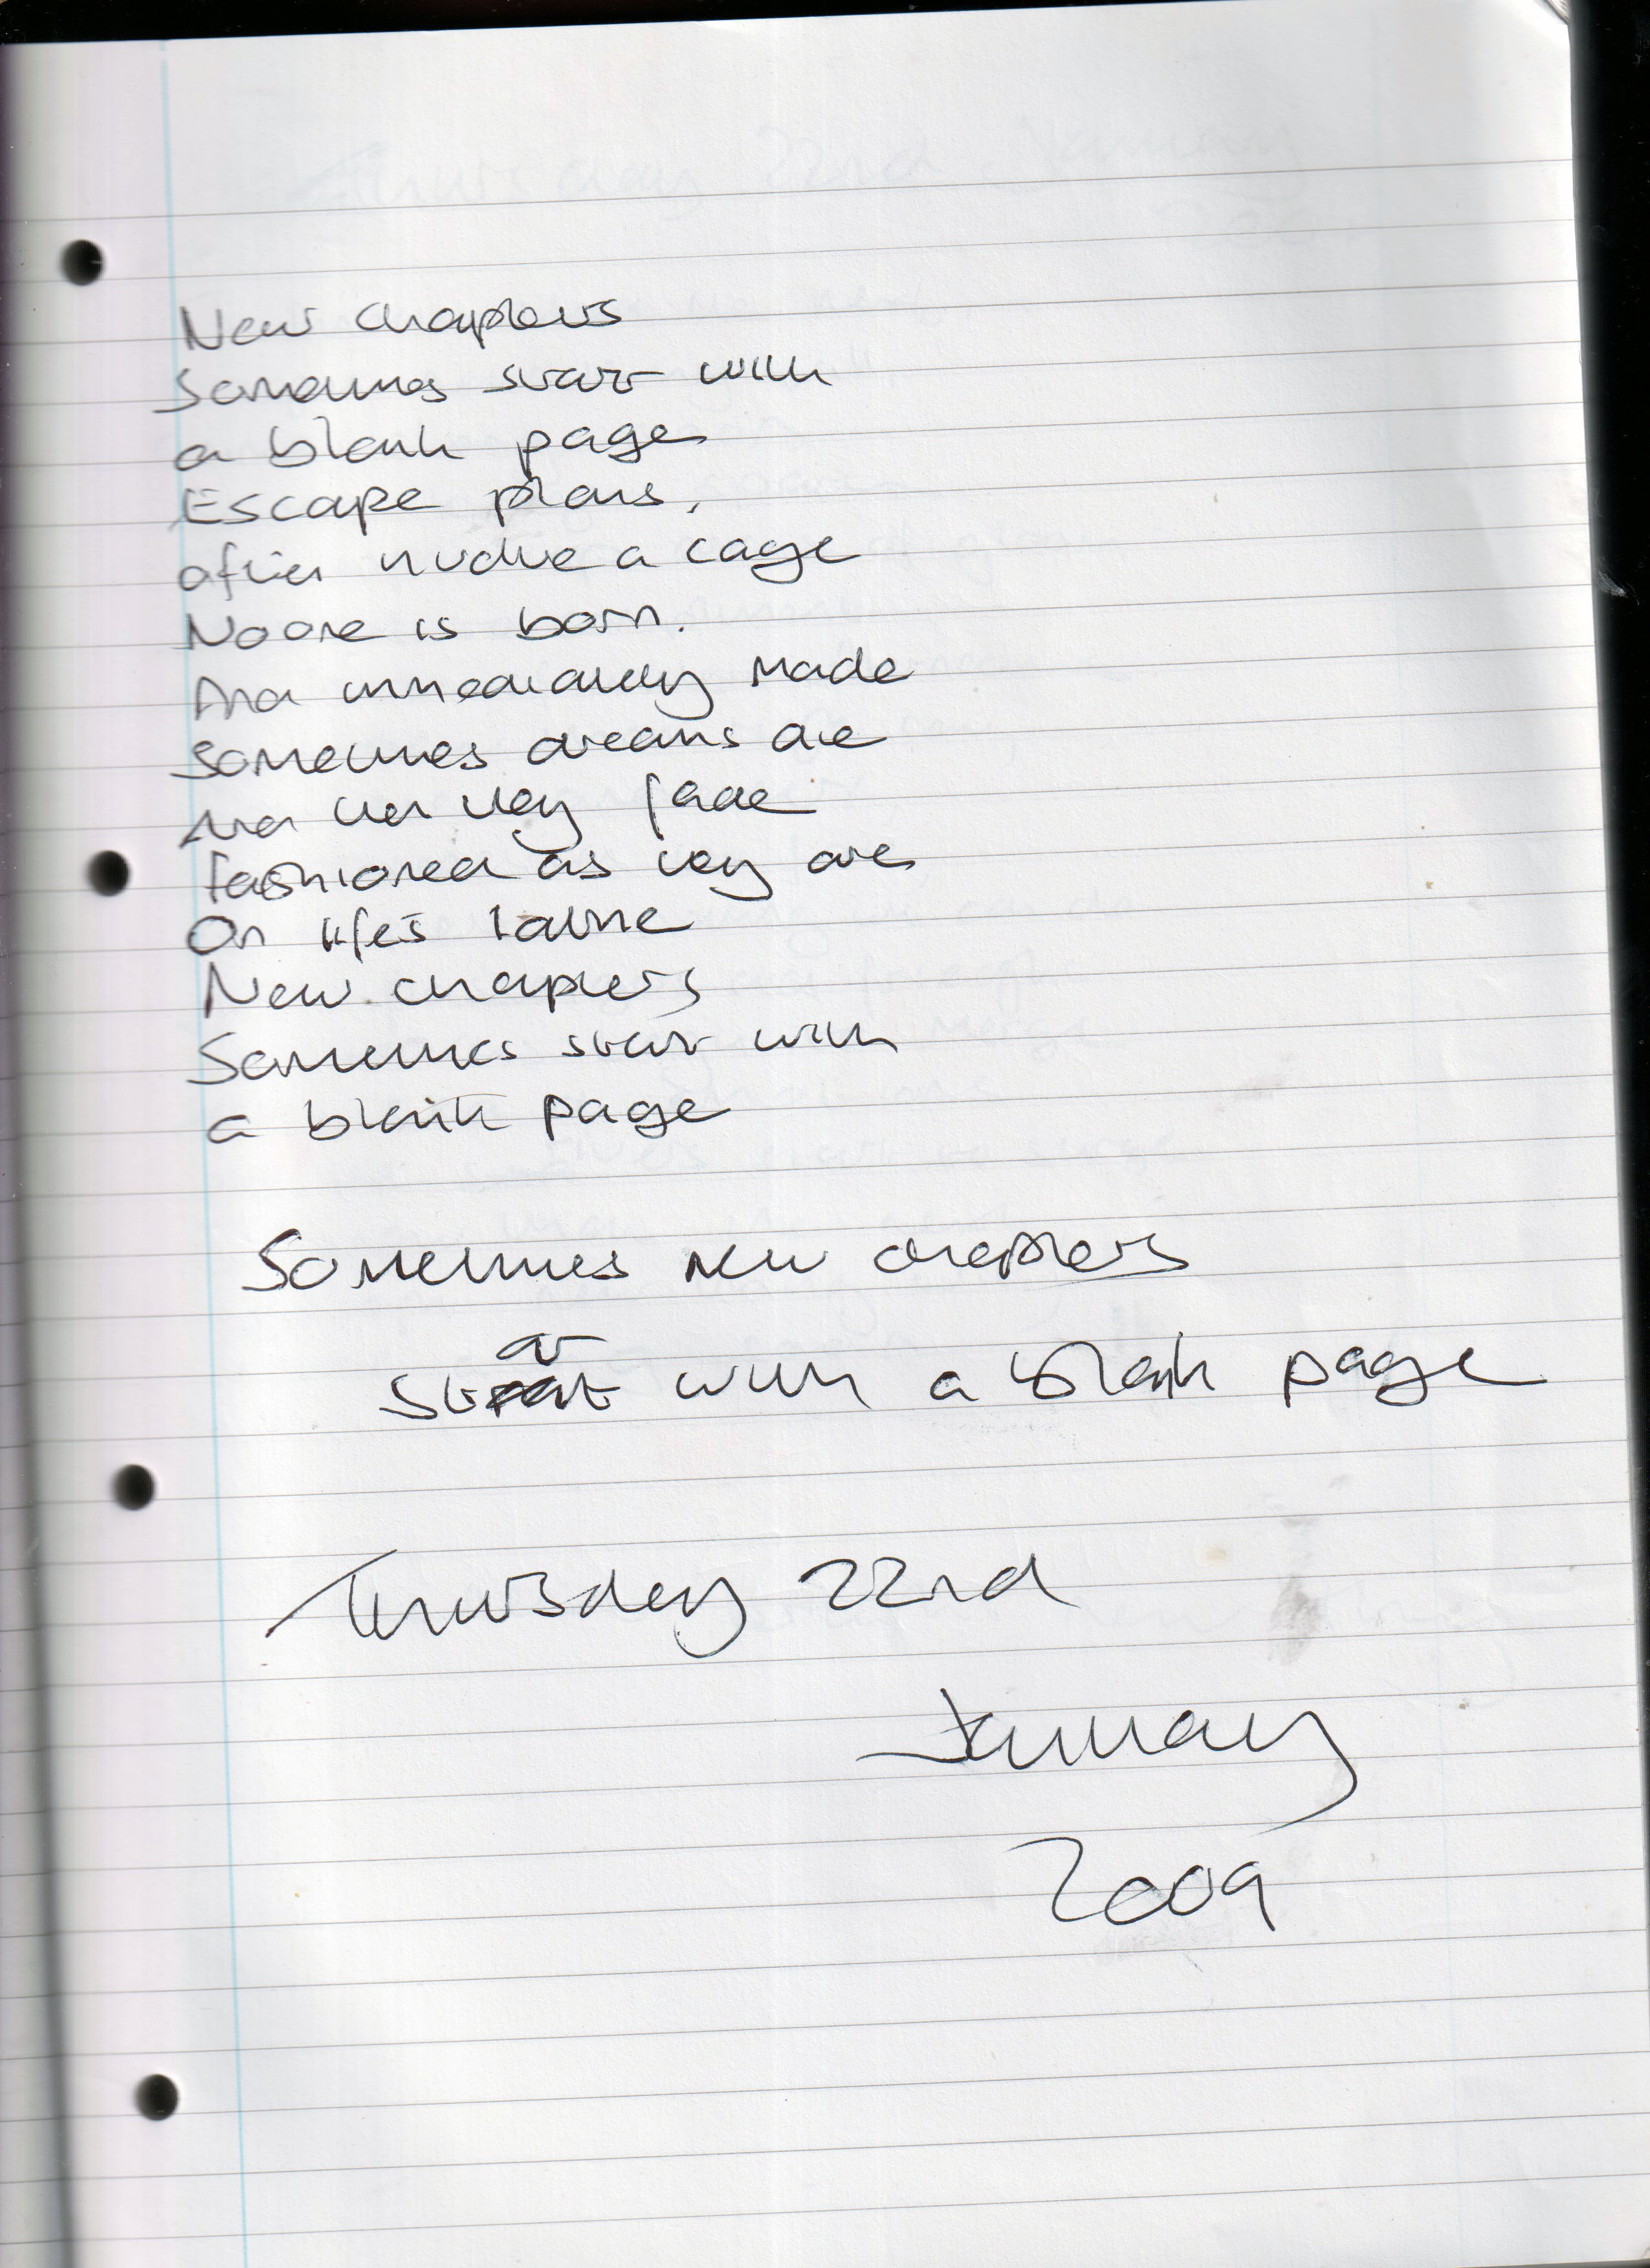 New chapters
Sometimes start with
a blank page
Escape plans,
often involve a cage
No one is born.
And immediately made
Sometimes dreams are
And then they fade
fashioned as they are
On life's
New chapters
Sometimes start with
a blank page
Sometimes new chapters
ar
start with a blank page
Thursday 22nd
January
2009